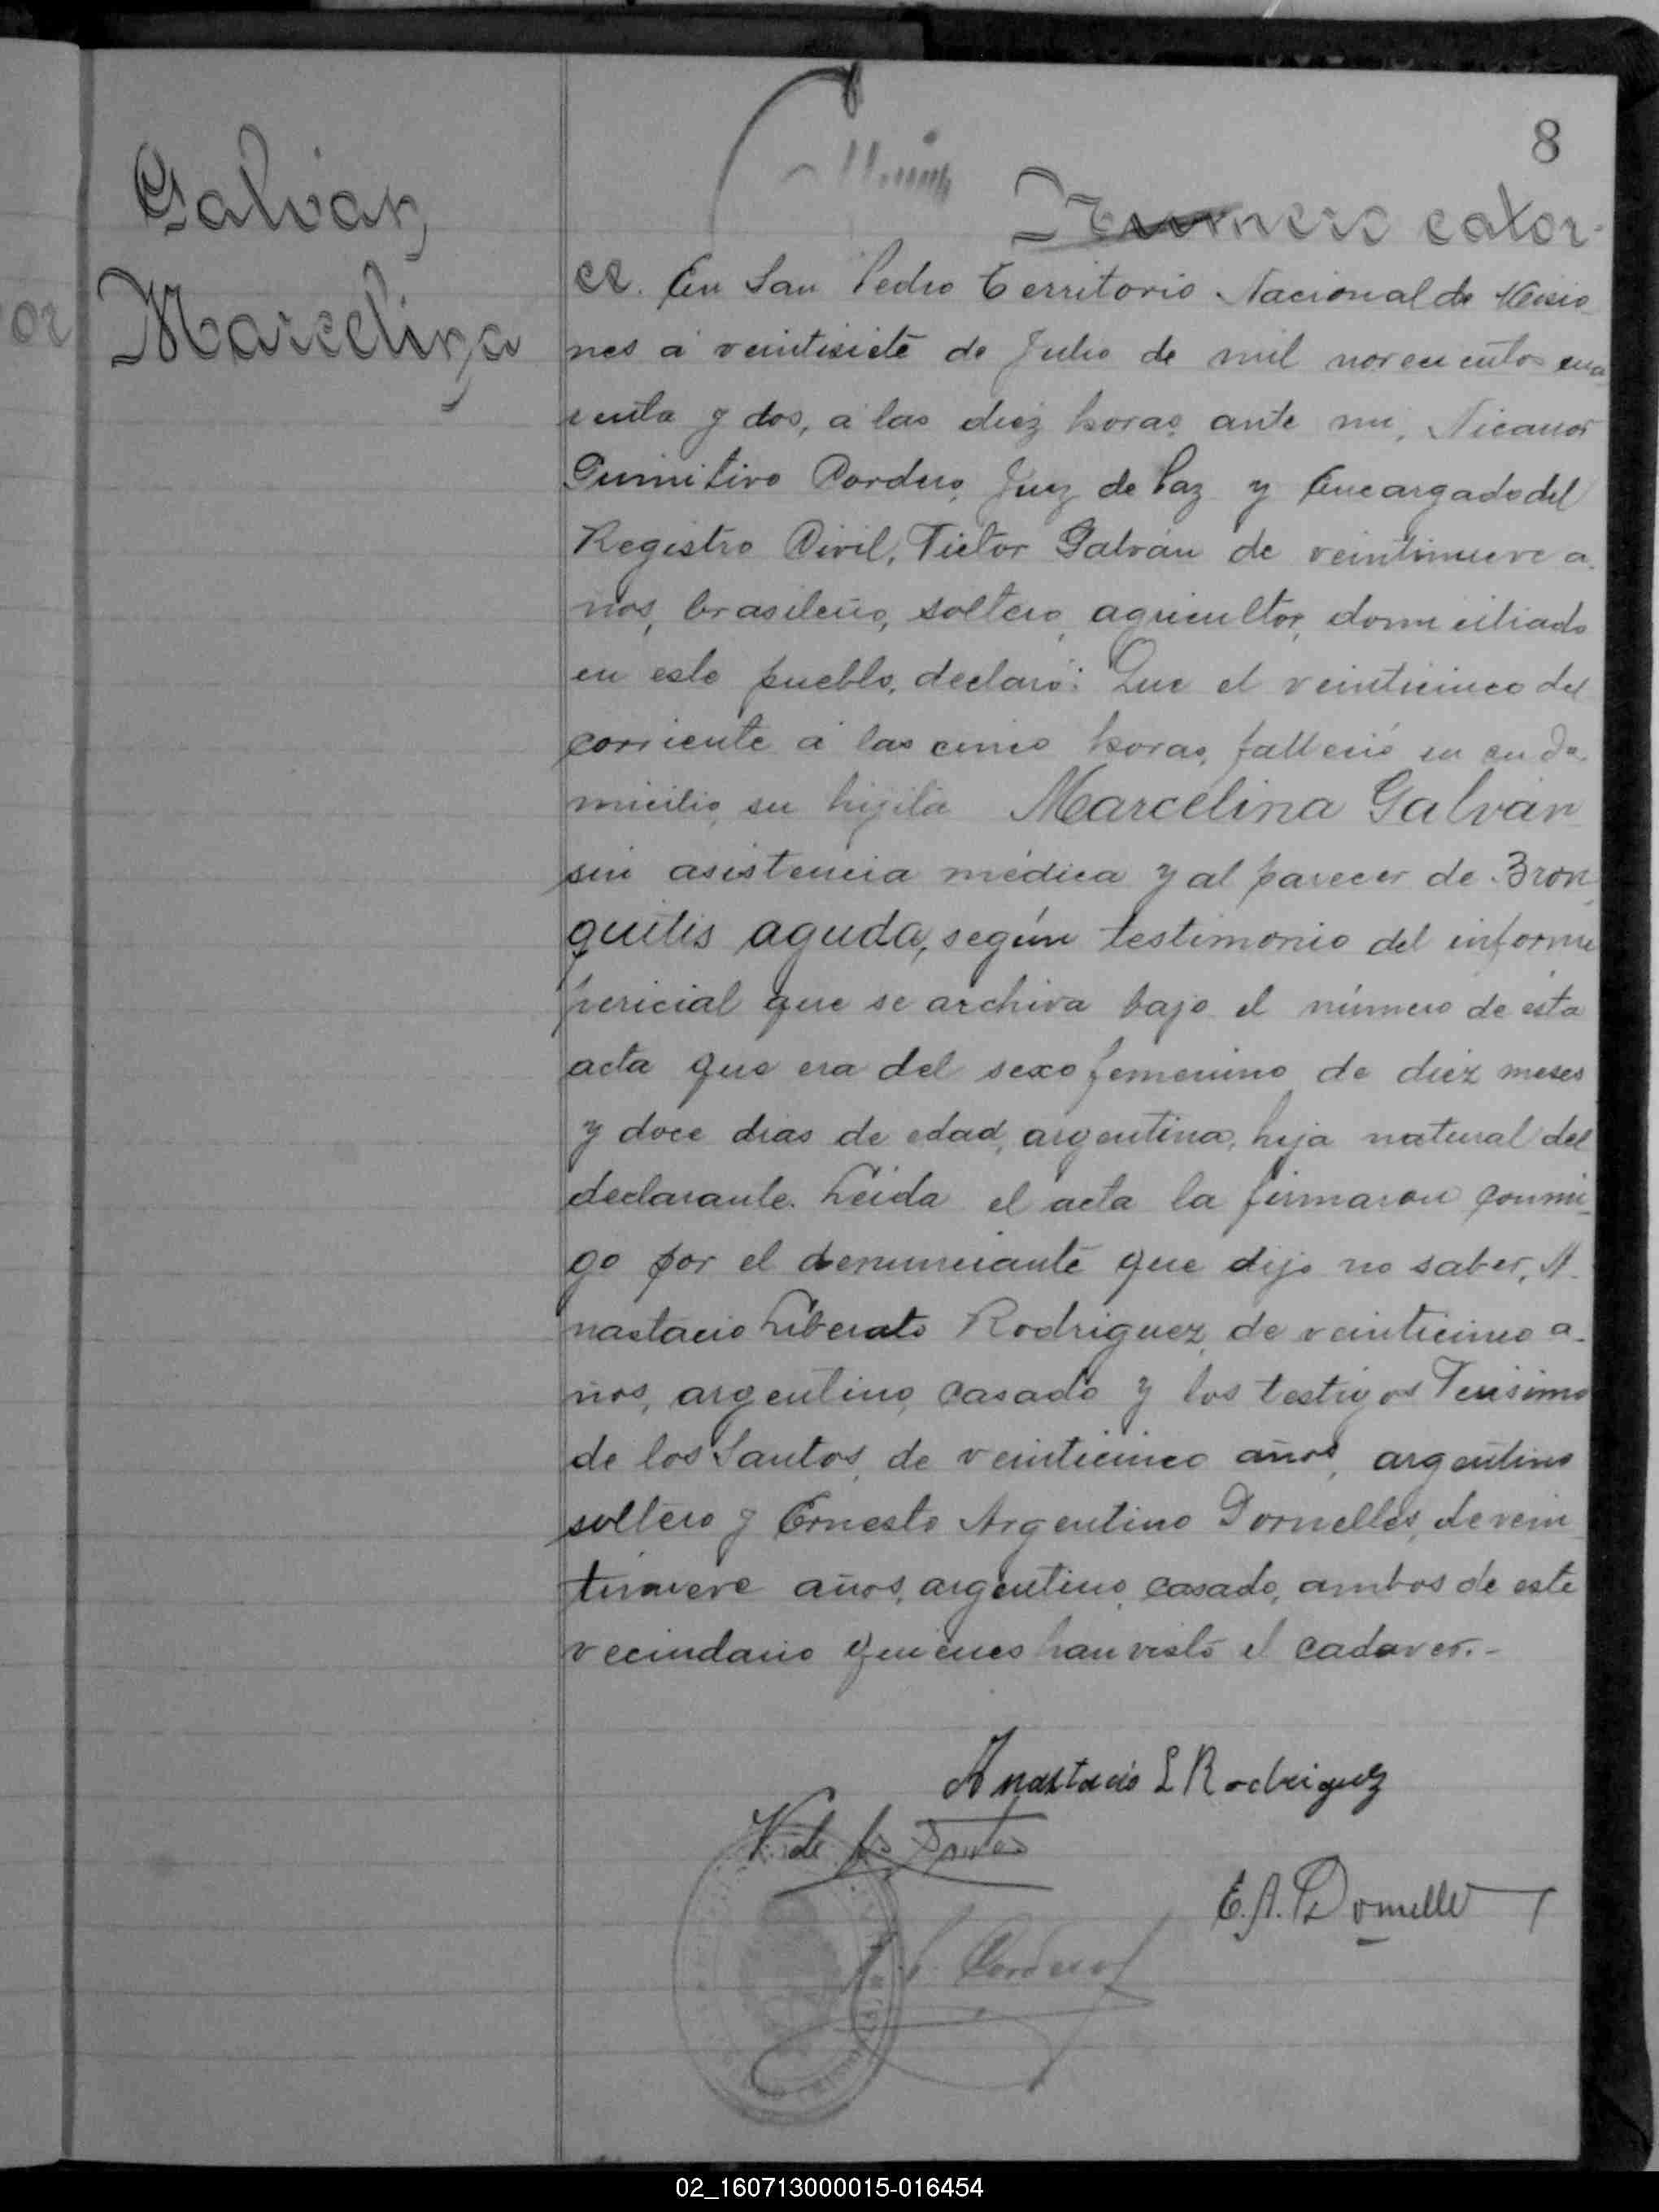 8
Galván
Marcelina
Numero cator-
ce. En San Pedro Territorio Nacional de Misio
nes á veintisiete de Julio de mil novecientos cua
renta y dos, á las diez horas, ante mi, Nicanor
Primitivo Cordero, Juez de Paz y Encargado del
Registro Civil, Victor Galván de veintinueve a-
ños, brasileño, soltero, agricultor, domiciliado
en este pueblo, declaró: Que el veinticinco del
corriente á las cinco horas, falleció en su do-
micilio, su hijita Marcelina Galván
sin asistencia médica y al parecer de Bron
quitis aguda, según testimonio del informe
pericial que se archiva bajo el número de ésta
acta que era del sexo femenino de diez meses
y doce dias de edad, argentina, hija natural del
declarante. Leida el acta la firmaron conmi-
go por el denunciante que dijo no saber, A-
nastacio Liberato Rodriguez, de veinticinco a-
ños, argentino, casado y los testigos Verisimo
de los Santos, de veinticinco años, argentino
soltero y Ernesto Argentino Dornelles, de vein
tinueve años, argentino, casado, ambos de este
vecindario quienes han visto el cadaver.-
Anastacio L Rodriguez
V. de los Santos
E. A. Dornelles
N. P. Cordero
02_160713000015-016454